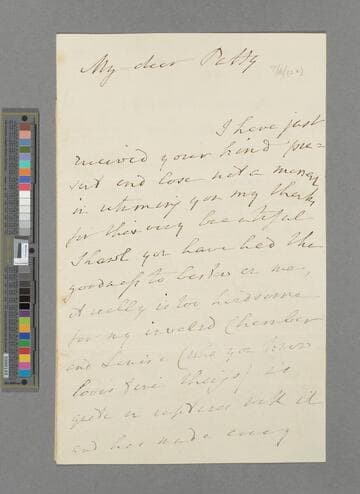 My dear Patty
I have just
received your kind pre=
sent and lose not a moment
in returning you my thanks
for the very beautiful
Shawl you have had the
goodness to bestow on me,
it really is too handsome
for my invalid Chamber
and Louisa (who you know
loves fine things) is
quite in raptures with it
and has made every